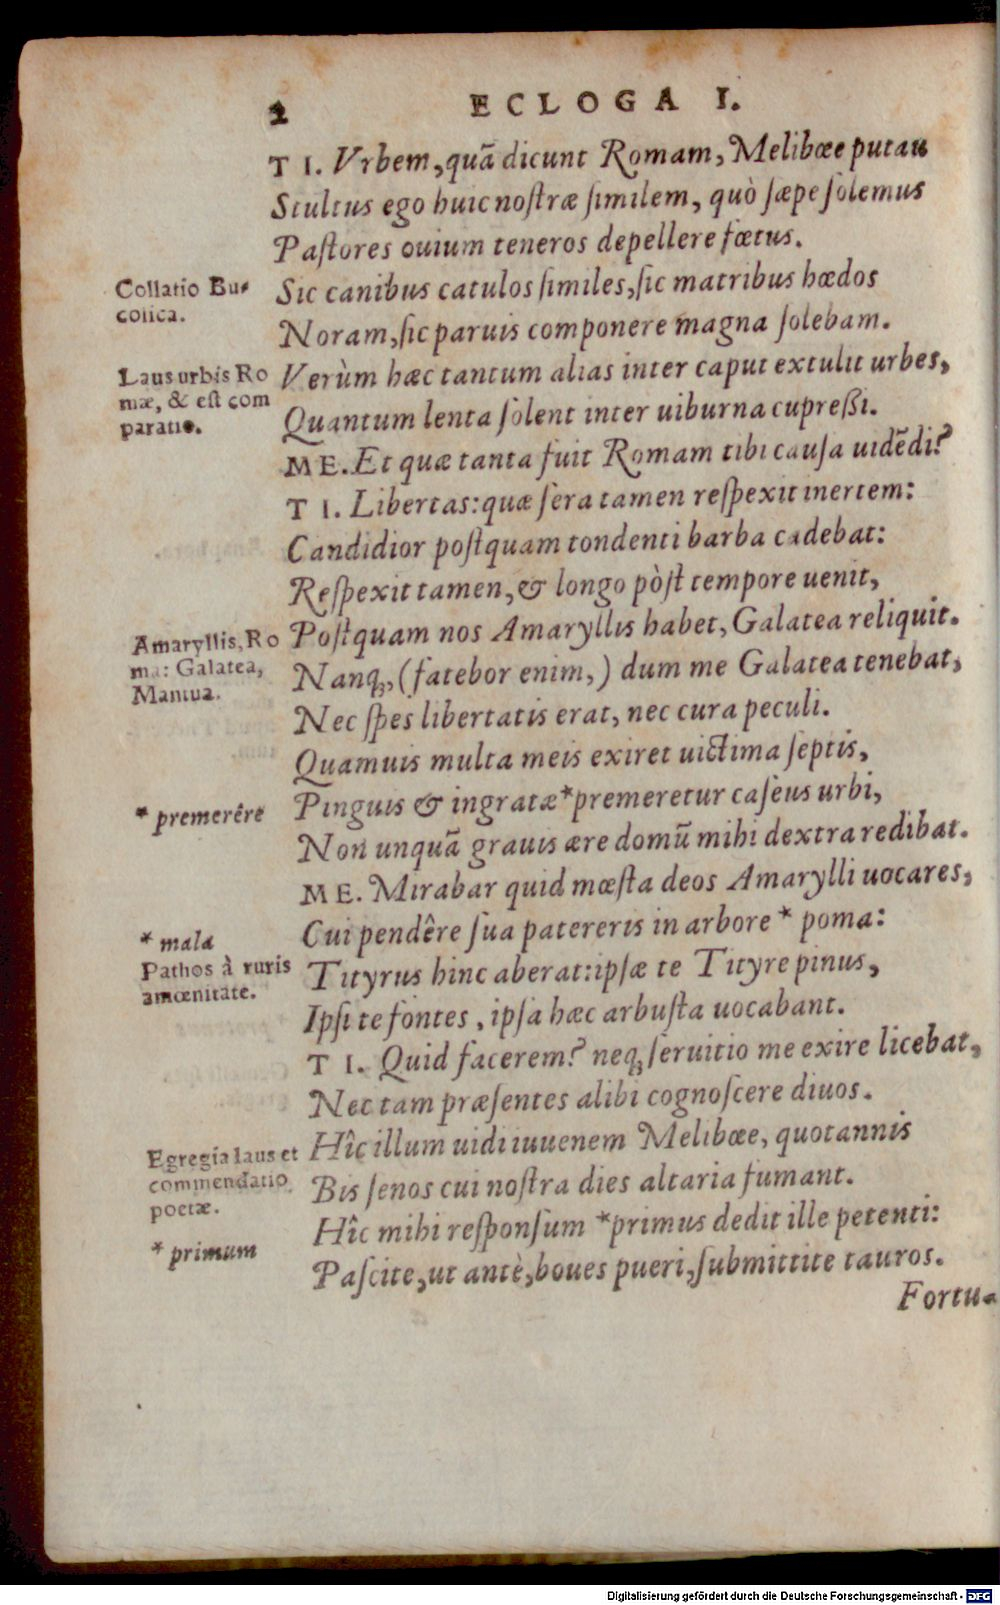 2 ECLOGA I.
TI. Vrbem, quā dicunt Romam, Melibœe putaui
Stultus ego huic noſtræ ſimilem, quò ſæpe ſolemus
Paſtores ouium teneros depellere fœtus.
Collatio Bu-
colica.
Sic canibus catulos ſimiles, ſic matribus hœdos
Noram, ſic paruis componere magna ſolebam.
Laus urbis Ro
mæ, & eſt com
paratio.
Verùm hæc tantum alias inter caput extulit urbes,
Quantum lenta ſolent inter uiburna cupreßi.
ME. Et quæ tanta fuit Romam tibi cauſa uidēdi?
TI. Libertas: quæ ſera tamen reſpexit inertem:
Candidior poſtquam tondenti barba cadebat:
Reſpexit tamen, & longo pòſt tempore uenit,
Amaryllis, Ro
ma: Galatea,
Mantua.
Poſtquam nos Amaryllis habet, Galatea reliquit.
Nanq́;, (fatebor enim,) dum me Galatea tenebat,
Nec ſpes libertatis erat, nec cura peculi.
Quamuis multa meis exiret uictima ſeptis,
* premerêre
Pinguis & ingratæ *premeretur caſeus urbi,
Non unquā grauis ære domū mihi dextra redibat.
ME. Mirabar quid mœſta deos Amarylli uocares,
Cui pendêre ſua patereris in arbore * poma:
* mala
Pathos à ruris
amœnitate.
Tityrus hinc aberat: ipſæ te Tityre pinus,
Ipſi te fontes, ipſa hæc arbuſta uocabant.
TI. Quid facerem? neq; ſeruitio me exire licebat,
Nec tam præſentes alibi cognoſcere diuos.
Hîc illum uidi iuuenem Melibœe, quotannis
Egregia laus et
commendatio
poetæ.
Bis ſenos cui noſtra dies altaria fumant.
Hîc mihi reſponſum *primus dedit ille petenti:
* primum
Paſcite, ut antè, boues pueri, ſubmittite tauros.
Fortu-
Digitalisierung gefördert durch die Deutsche Forschungsgemeinschaft - DFG